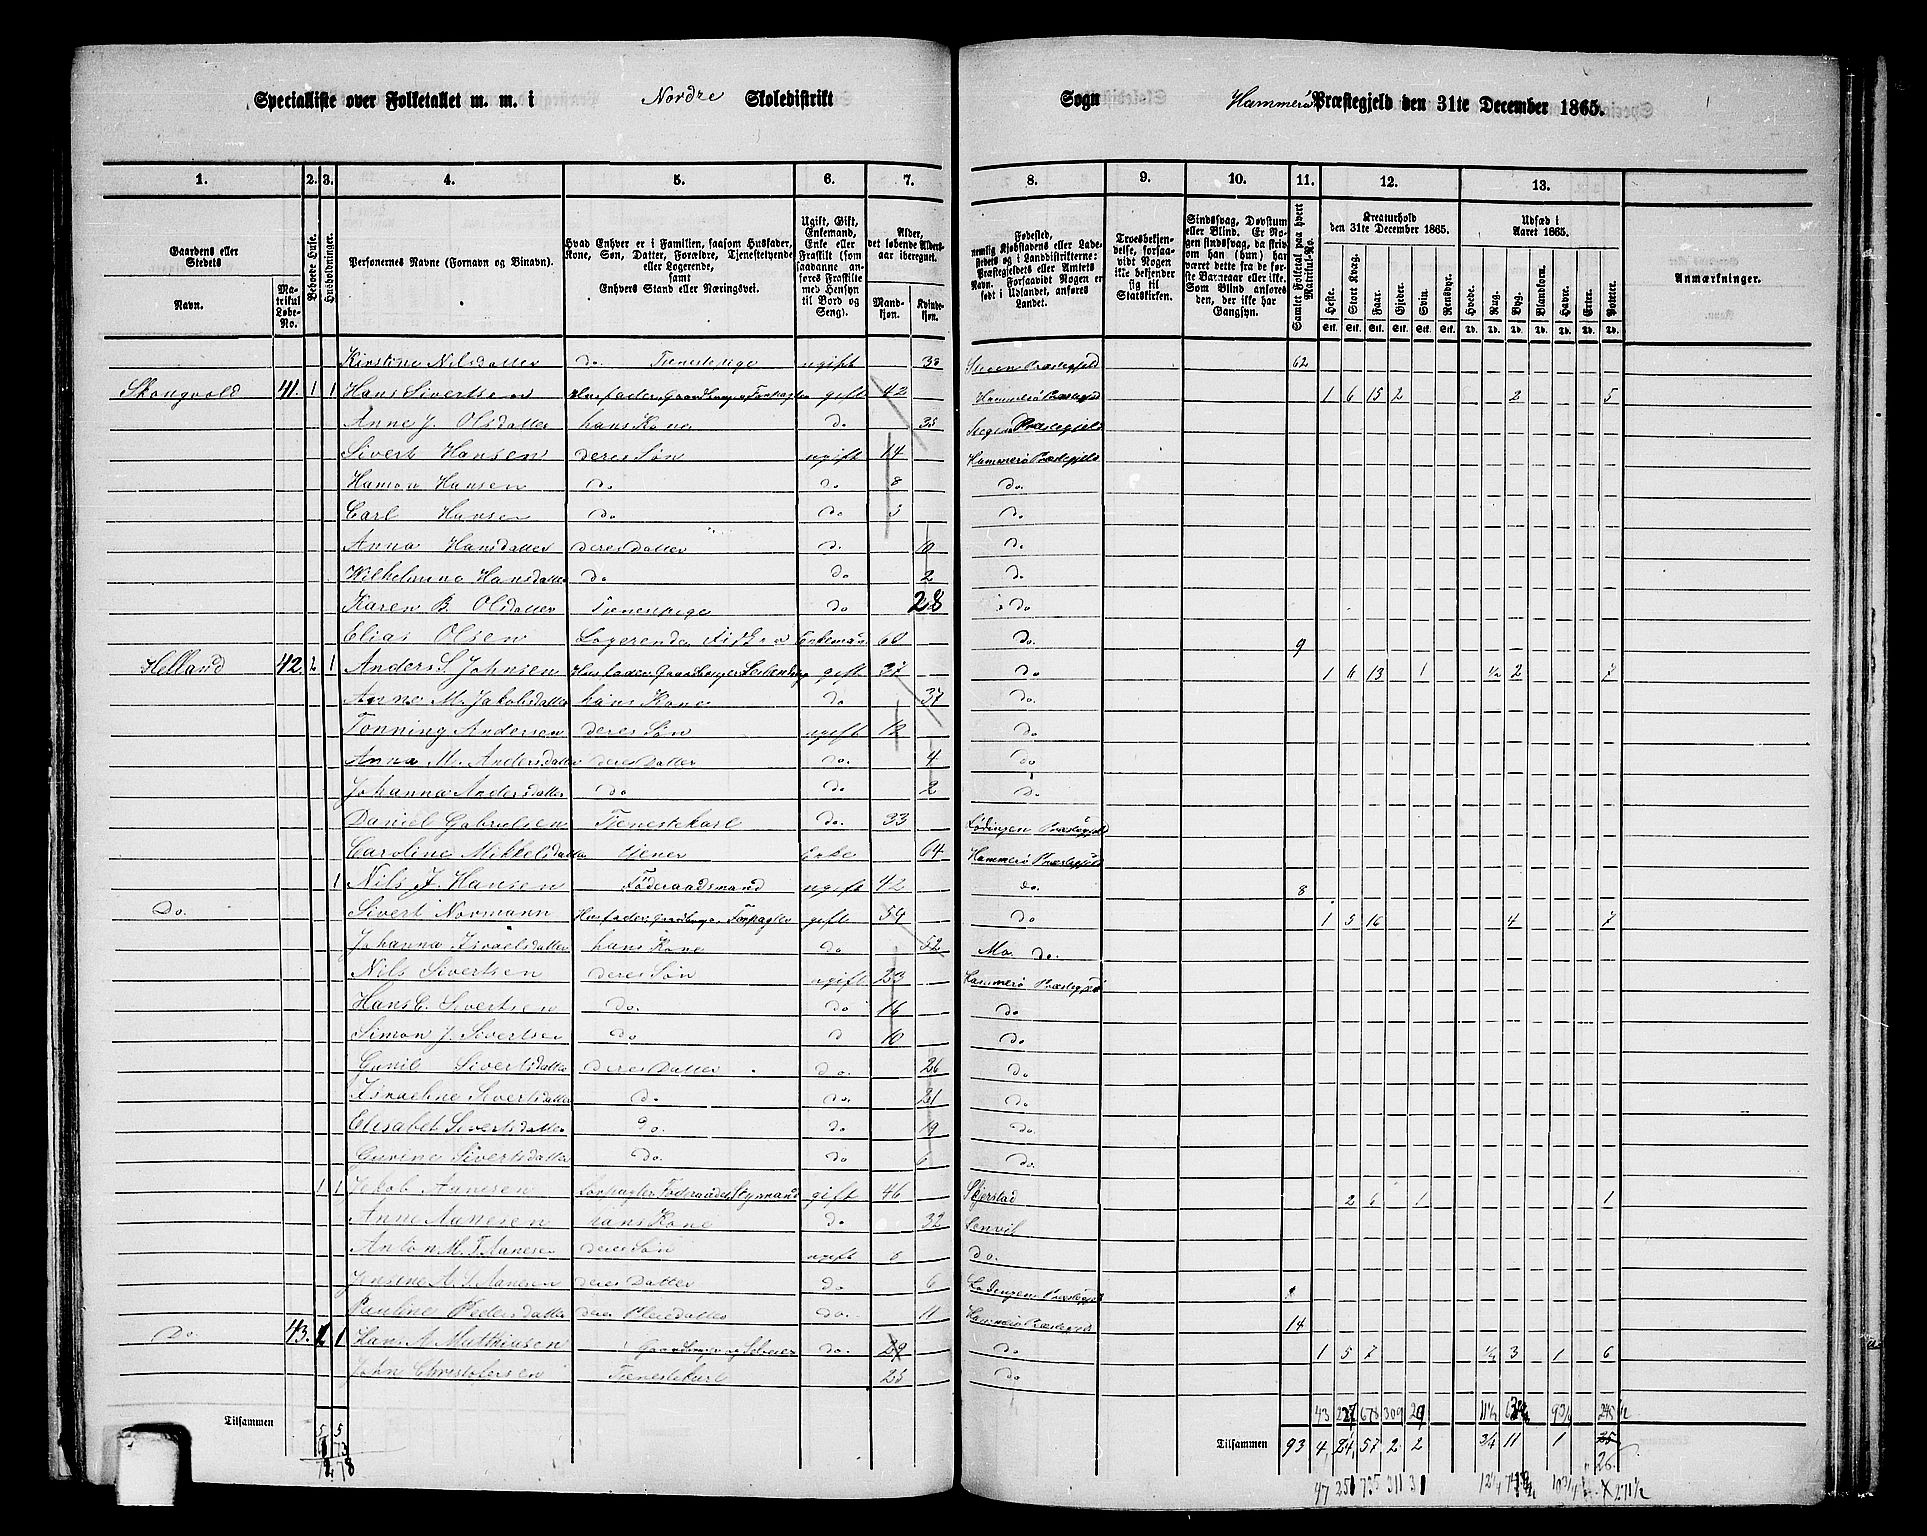 Specialliste over Folketallet m. m. i Nordre Skoledistrikt Sogn Hammerø Præstegjeld den 31te December 1865.
1. 2. 3. 4. 5. 6. 7. 8. 9. 10. 11. 12. 13.
Gaardens eller Stedets Navn. Matrikul Løbe-No. Beboede Huse. Husholdninger. Personernes Navne (Fornavn og Binavn). Hvad Enhver er i Familien, saasom Husfader, Kone, Søn, Datter, Forældre, Tjenestetyende eller Logerende, samt Enhvers Stand eller Næringsvei. Ugift, Gift, Enkemand, Enke eller Fraskilt (som saadanne anføres Fraskilte med Hensyn til Bord og Seng). Alder, det løbende Alders-aar iberegnet. Mandkjøn. Kvindekjøn.
Anmærkninger.
Kreaturhold den 31te December 1865. Heste. Stort Kvæg. Faar. Gjeder. Svin. Rensdyr.
Udsæd i Aaret 1865. Hvede. Rug. Byg. Blandkorn. Havre. Erter. Poteter.
Kirstine Nilsdatter do Tjenestepige ugift Stegen Præstegjeld 62
Skongvold 41. 1 1 Hans Sivertsen gift 42 Hammerø Præstegjeld 1 6 15 2 2 5
Anne J. Olsdatter hans Kone do 35 Stegen Præstegjeld
Sivert Hansen deres Søn ugift 14 Hammerø Præstegjeld
Hamon Hansen do do 8 do
Carl Hansen do do 3 do
Anna Hansdatter deres Datter do 10 do
Wilhelmina Hansdatter do do 2 do
Karen B. Olsdatter Tjenestepige do 28 do
Elias Olsen Logerende Enkemand 60 do 9
Helland 42. 2 1 Anders S. Johnsen gift 37 do 1 6 13 1 1/2 2 7
Anne M. Jakobsdatter hans Kone do 37 do
Tønning Andersen deres Søn ugift 12 do
Anna M. Andersdatter deres Datter do. 4 do
Johanna Andersdatter do do 2 do
Daniel Gabrielsen Tjenestekarl do. 33 Lødingen Præstegjeld
Caroline Mikkelsdatter tjener Enke 64 Hammerø Præstegjeld
1 Nils J. Hansen Føderaadsmand ugift 42 do. 8
Do. Sivert Normann gift 54 do 1 5 16 4 7
Johanna Israelsdatter hans Kone do 52 Mo. do.
Nils Sivertsen deres Søn ugift 23 Hammerø Præstegjeld
Hans C. Sivertsen do. do 16 do
Simon J. Sivertsen do d 10 do
Gunil Sivertsdatter deres Datter do. 26 do
Israeline Sivertsdatter do do. 21 do
Elisabet Sivertsdatter do. do 19 do
Sivertsdatter do. do 6 do
1 1 Jakob Aanesen gift 46 Skjerstad 2 6 1 1
Anne Aanesen hans Kone do 32 Lenvik
Anton M. Aanesen deres Søn ugift do.
Jensine A. S. Aanesen deres Datter do 6 Lødingen Præstegjeld
Pauline Pedersdatter deres Pleiedatter do. 11 Hammerø Præstegjeld 14
Do. 43. 1 Hans A. Matthiasen do. 29 do 1 5 7 1/4 3 1 6
John Christofersen Tjenestekarl 25 do
Tilsammen 5 5
Tilsammen 93 4 24 57 2 2 3/4 11 1 26
72 78
47 251 735 311 31